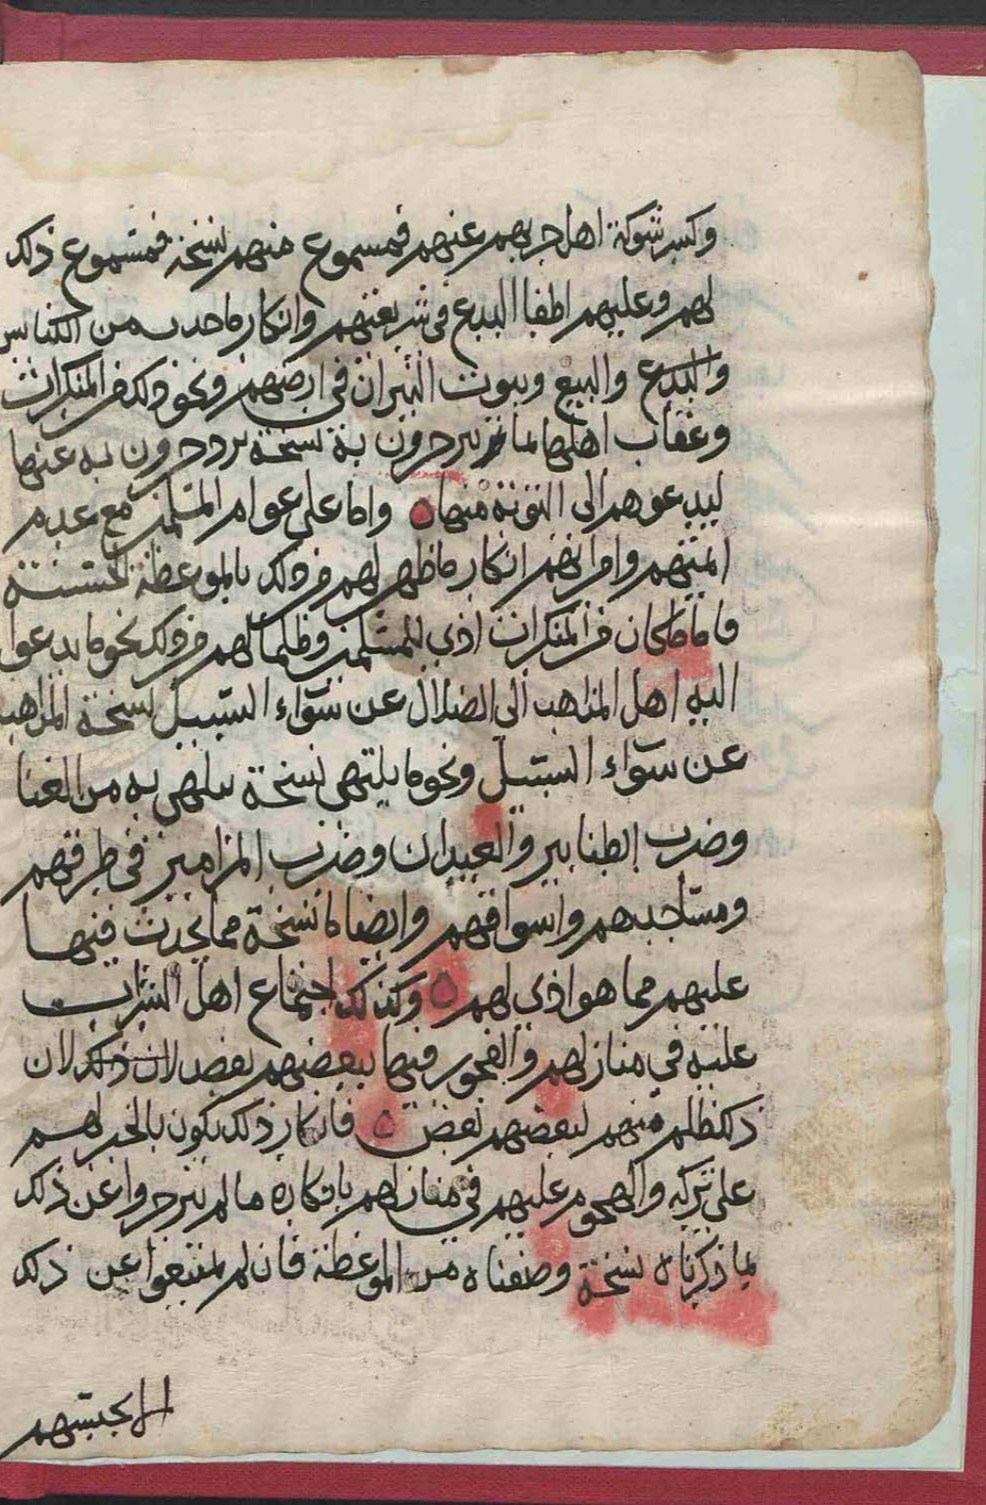 وكسر شوكة اهل حربهم عنهم فمسموع منهم نسخة فمسموع ذلك
لهم وعليهم اطفا البدع في شريعتهم وانكار ما حدث من الكنايس
والبدع والبيع وبيوت النيران في ارضهم ونحو ذلك من المنكرات
وعقاب اهلها بما ينزجرون به نسخة يزدجرون به عنها
ليدعوهم الى التوبة منها ٥ واما على عوام المسلمين مع عدم
ايمتهم وامرايهم انكار ما ظهر لهم من ذلك بالموعظة الحسنة
فاما ما كان من المنكرات اذى للمسلمين وظلما لهم من ذلك نحو ما يدعوا
اليه اهل المذاهب الى الضلال عن سواء السبيل نسخة المذاهب
عن سواء السبيل ونحو ما يلتهى نسخة يتلهى به من الغنا
وضرب الطنابير والعيدان وضرب المزامير في طرقهم
ومساجدهم واسواقهم وايضا ما نسخة مما يحدث فيها
عليهم مما هو اذى لهم ٥ وكذلك اجتماع اهل الشراب
عليه في منازلهم والفجور فيها ببعضهم بعض لان ذلك لان
ذلك ظلم منهم لبعضهم بعض ٥ فانكار ذلك يكون بالخبر لهم
على تركه والهجوم عليهم في منازلهم بانكاره ما لم ينزجروا عن ذلك
بما ذكرناه نسخة وصفناه من الموعظة فان لم يمتنعوا عن ذلك
الا بحبسهم